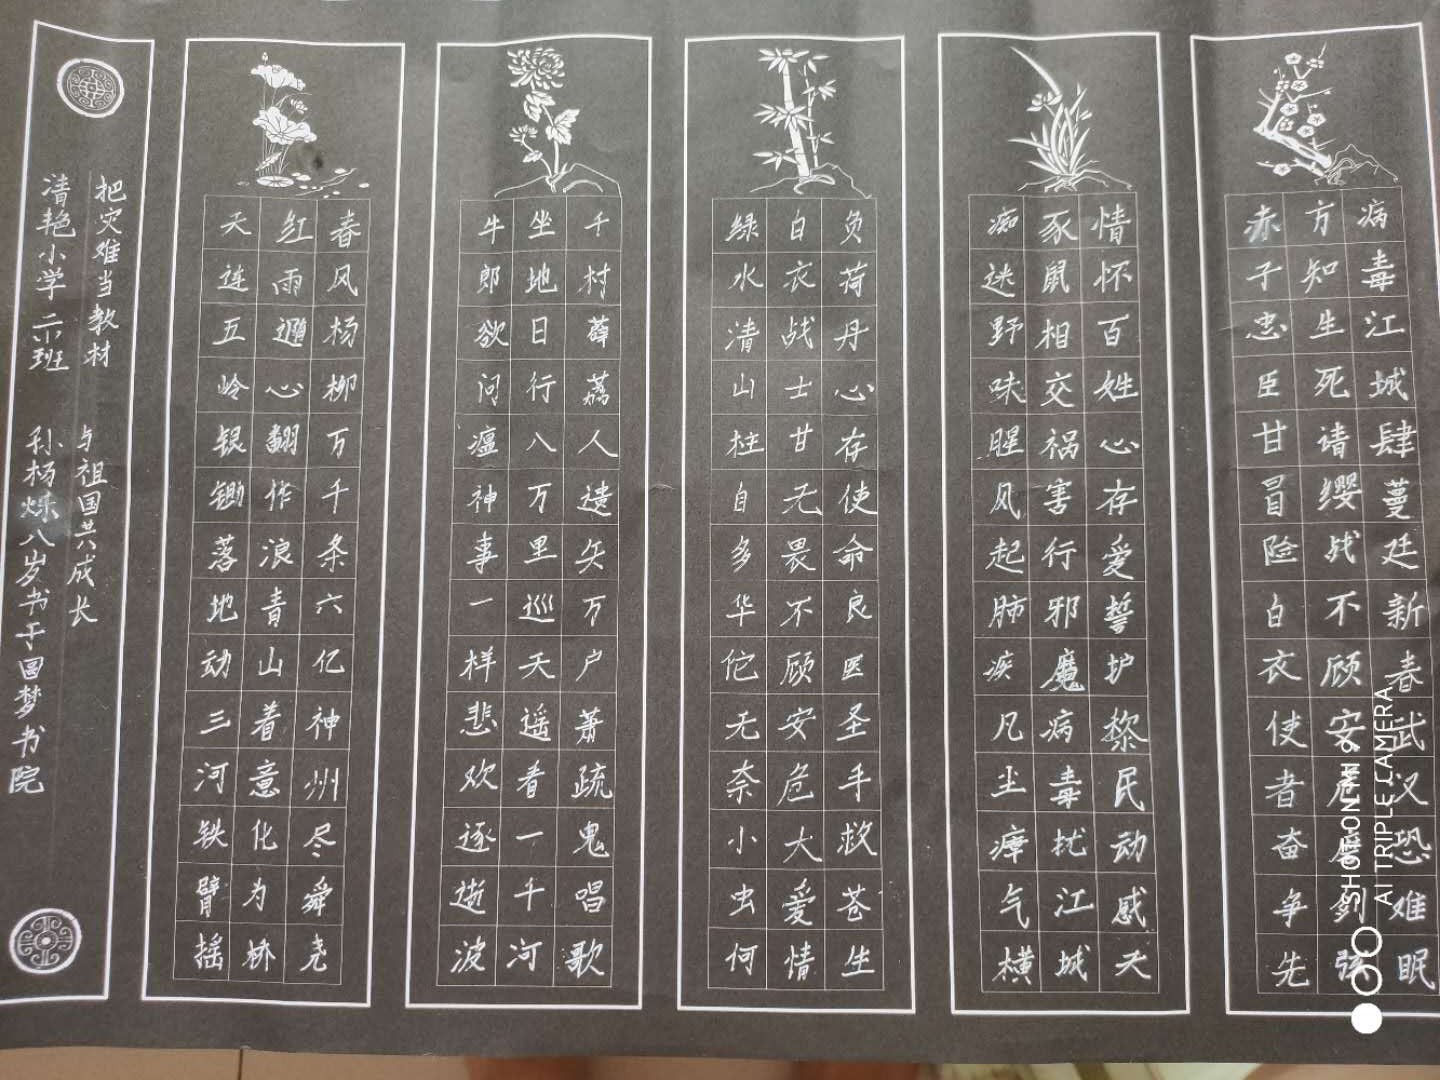 病毒江城肆蔓廷新春武汉恐难眠
方知生死请缨战不顾安危剑弦
赤子忠臣甘冒险白衣使者奋争先
情怀百姓心存爱誓护黎民动感天
豕鼠相交祸害行邪魔病毒扰江城
痴迷野味腥风起肺疾凡尘瘴气横
负荷丹心存使命良医圣手救苍生
白衣战士甘无畏不顾安危大爱情
绿水清山枉自多华佗无奈小虫何
千村薜荔人遗矢万户萧疏鬼唱歌
坐地日行八万里巡天遥看一千河
牛郎欲问瘟神事一样悲欢逐逝波
春风杨柳万千条六亿神州尽舜尧
红雨随心翻作浪青山着意化为桥
天连五岭银锄落地动三河铁臂摇
把灾难当教材 与祖国共成长
清艳小学 二六班 孙杨烁八岁书于圆梦书院
SHOT ON MI 9
AI TRIPLE CAMERA